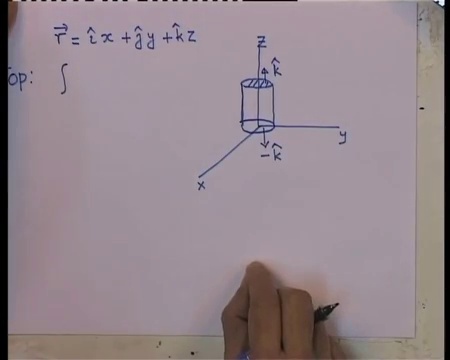 r⃗ = îx + ĵy + k̂z
op: ∫
z
k̂
y
-k̂
x